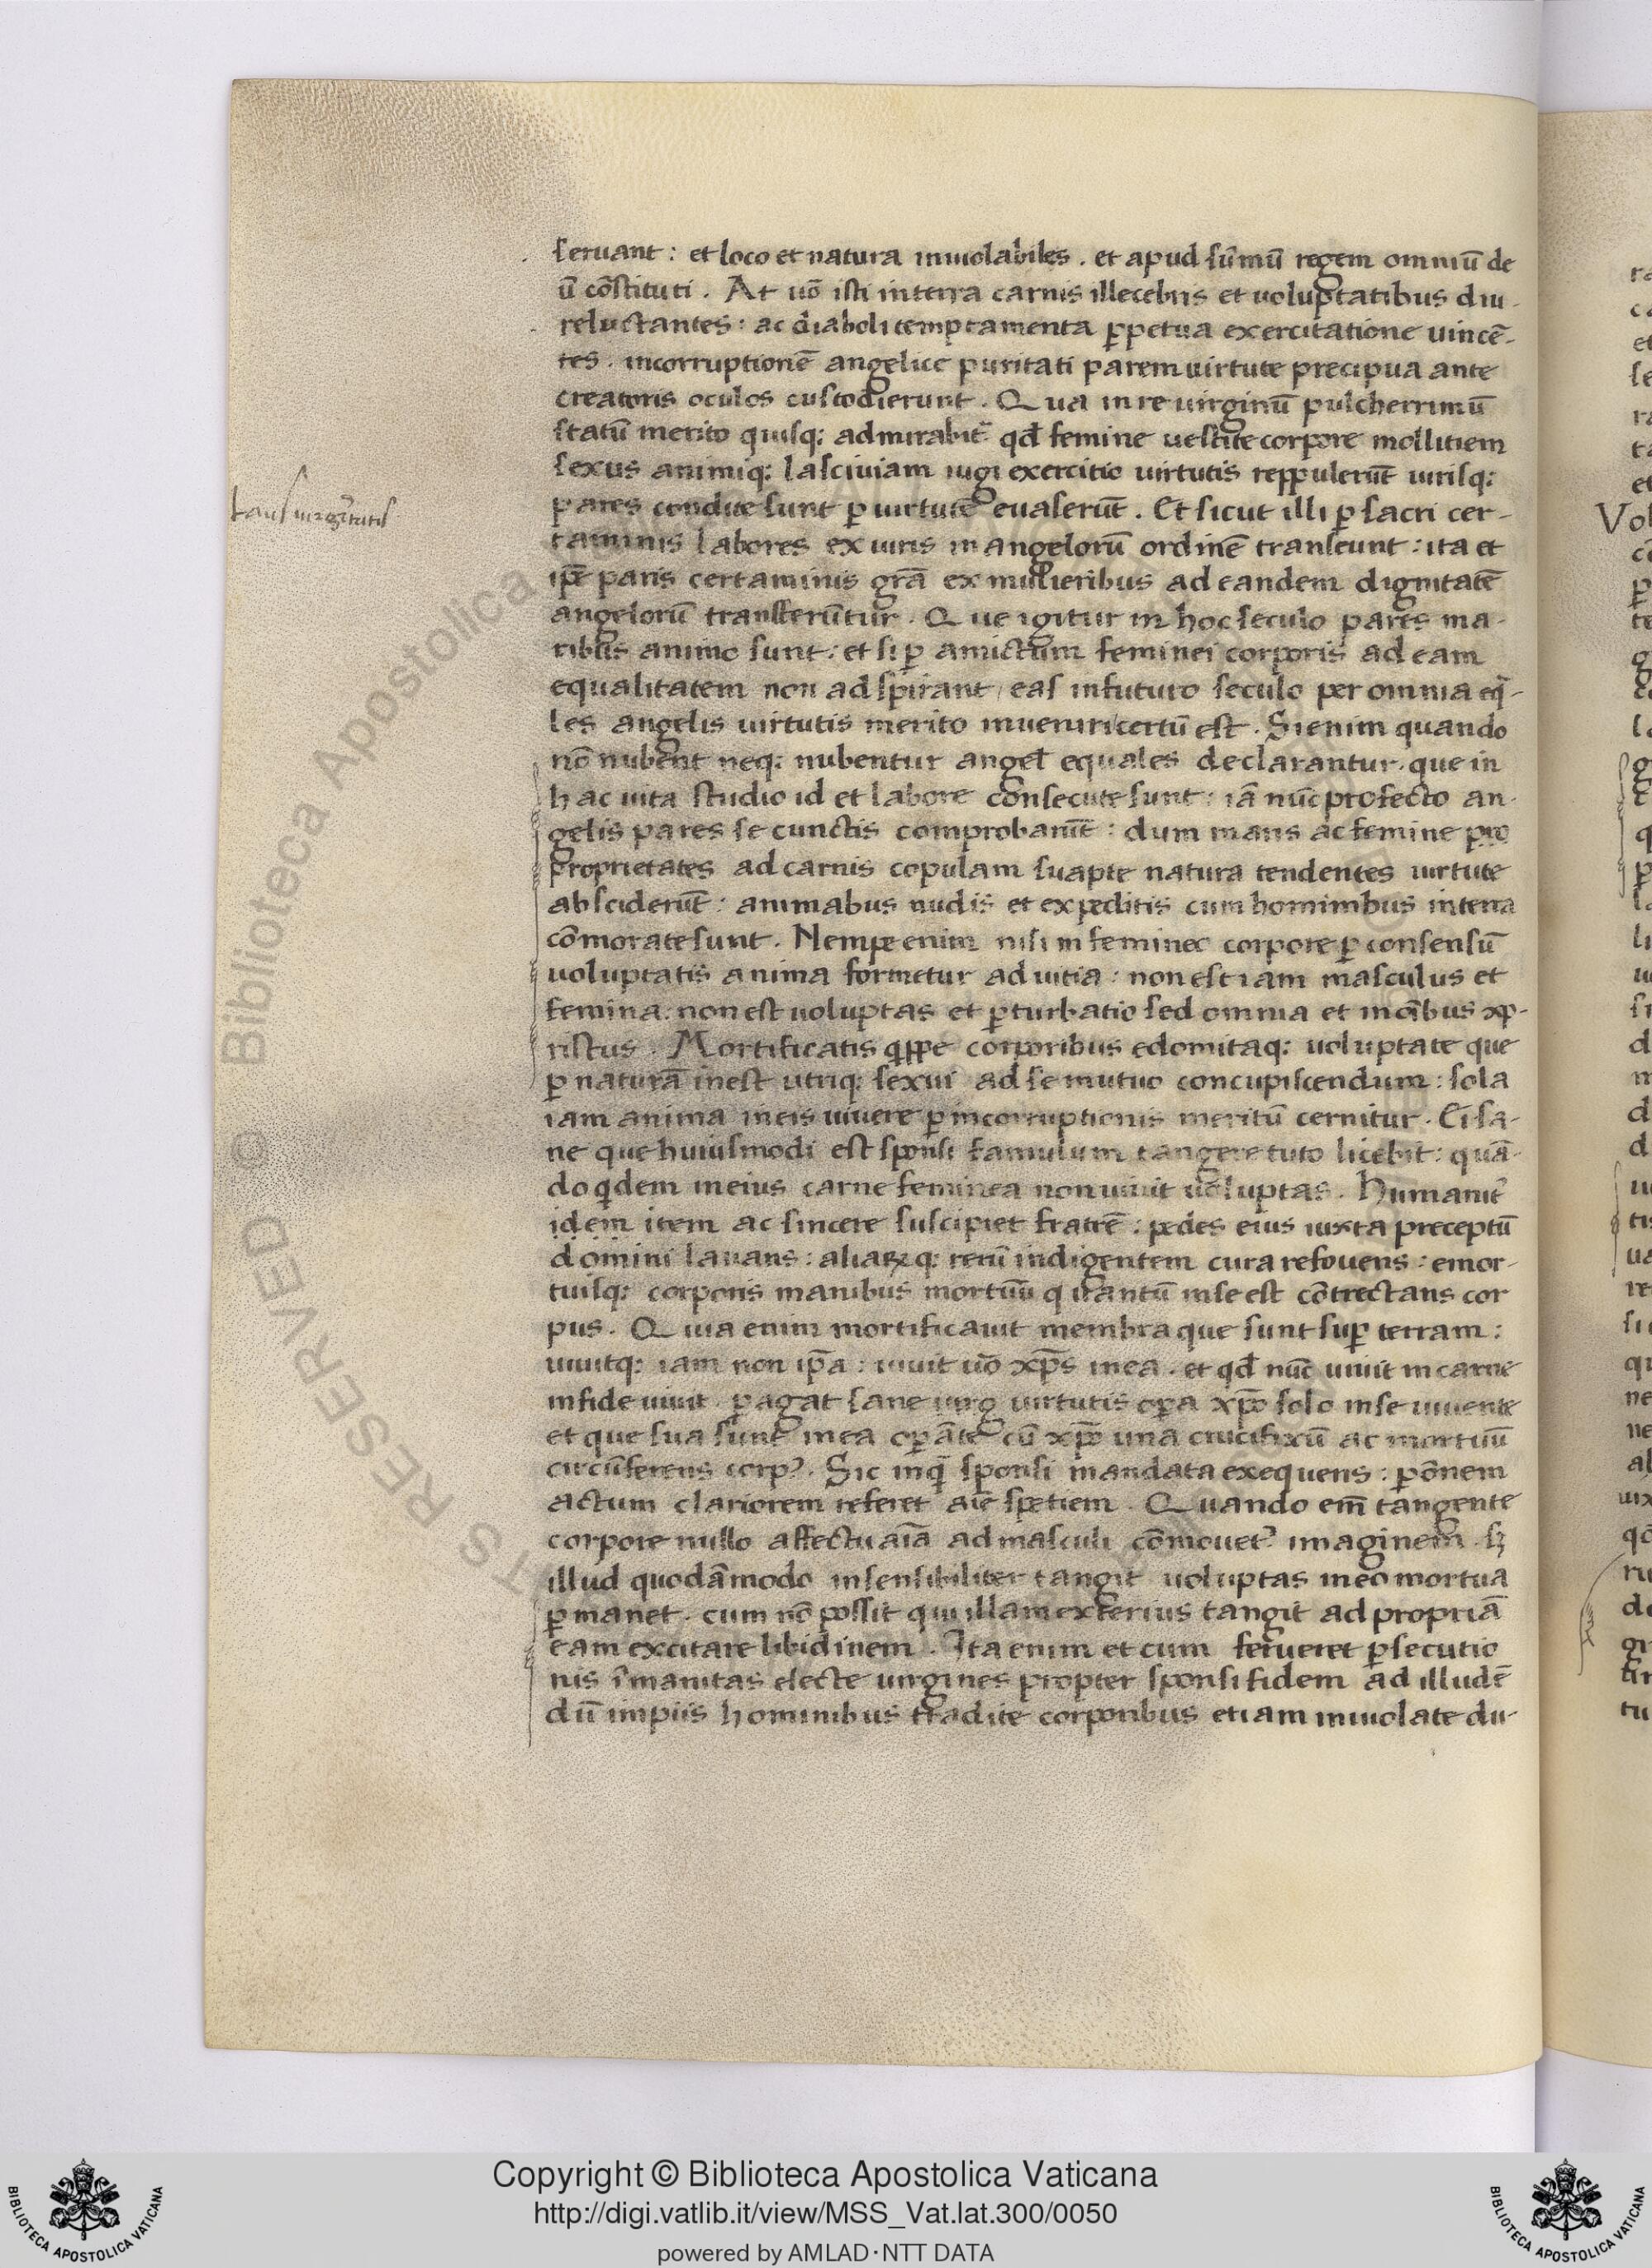 seruant: et loco et natura inuiolabiles. et apud sūmū regem omniū de
ū cōstituti. At uō isti in terra carnis illecebris et uoluptatibus diu
reluctantes: ac diaboli temptamenta ꝑpetua exercitatione uincē-
tes. incorruptionē angelice puritati parem uirtute precipua ante
creatoris oculos custodierunt. Qua in re uirginū pulcherrimū
statū merito quisq; admirabit᷑ qd̄ femine uestite corpore mollitiem
sexus animiq; lasciuiam iugi exercitio uirtutis reppulerūt uirisq;
laus uirginitatis
pares condite sunt ꝑ uirtutē euaserūt. Et sicut illi ꝑ sacri cer-
taminis labores ex uiris in angelorū ordinē transeunt: ita et
ip̄e paris certaminis grā ex mulieribus ad eandem dignitatē
angelorū transferūntur. Que igitur in hoc seculo pares ma-
ribus animo sunt: et si ꝑ amictum feminei corporis ad eam
equalitatem non adspirant/ eas in futuro seculo per omnia eq̄-
les angelis uirtutis merito inueniri certū est. Si enim quando
nō nubent neq; nubentur angel̄ equales declarantur. que in
hac uita studio id et labore consecute sunt: iā nūc profecto an-
gelis pares se cunctis comprobanūt: dum maris ac femine pro
proprietates ad carnis copulam suapte natura tendentes uirtute
absciderūt: animabus nudis et expeditis cum hominibus in terra
cōmorate sunt. Nempe enim nisi in femineo corpore ꝑ consensū
uoluptatis anima formetur ad uitia: non est iam masculus et
femina: non est uoluptas et ꝑturbatio sed omnia et in oībus xp-
ristus. Mortificatis qppe corporibus edomitaq; uoluptate que
ꝑ naturā inest utriq; sexui ad se mutuo concupiscendum: sola
iam anima in eis uiuere ꝑ incorruptionis meritū cernitur. Ei sa-
ne que huiusmodi est sponsi famulum tangere tuto licebit: quā-
do qdem in eius carne feminea non uiuit uoluptas. Humanit᷑
idem item ac sincere suscipiet fratrē: pedes eius iuxta preceptū
domini lauans: aliaꝝq; rerū indigentem cura refouens: emor-
tuisq; corporis manibus mortuū q itantū in se est cōtrectans cor
pus. Quia enim mortificauit membra que sunt suꝑ terram:
uiuitq; iam non ip̄a: uiuit uō xp̄s in ea. et qd̄ nūc uiuit in carne
in fide uiuit. ꝑagat sane uirg uirtutis oꝑa xp̄o solo in se uiuente
et que sua sunt in ea oꝑāte cū xp̄o una crucifixū ac mortuū
circūferens corpꝰ. Sic inq̄ sponsi mandata exequens: ꝑ ōnem
actum clariorem referet aīe spetiem. Quando em̄ tangente
corpore nullo affectu aīa ad masculi cōmouet᷑ imaginem. sꝫ
illud quodāmodo insensibiliter tangit uoluptas in eo mortua
ꝑmanet. cum nō possit qui illam exterius tangit ad propriā
eam excitare libidinem. Ita enim et cum ferueret ꝑsecutio
nis īmanitas electe uirgines propter sponsi fidem ad illudē
dū impiis hominibus tradite corporibus etiam inuiolate du-
Copyright © Biblioteca Apostolica Vaticana
http://digi.vatlib.it/view/MSS_Vat.lat.300/0050
powered by AMLAD·NTT DATA
BIBLIOTECA APOSTOLICA VATICANA
BIBLIOTECA APOSTOLICA VATICANA